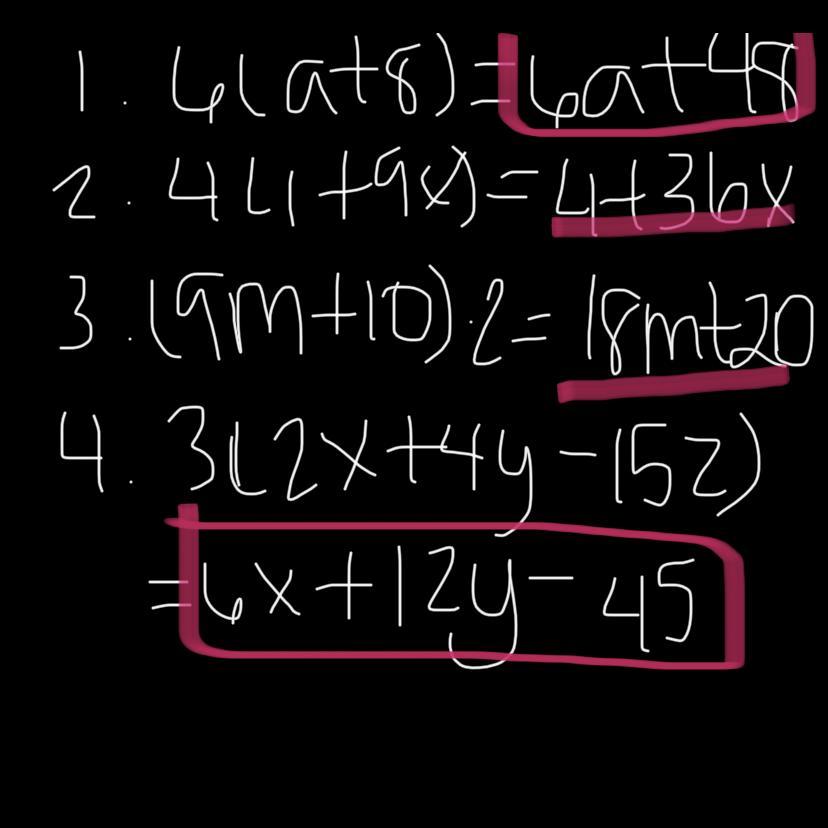 1. 6(a+8)=6a+48
2. 4(1+9x)=4+36x
3. (9m+10)·2=18m+20
4. 3(2x+4y-15z)
=6x+12y-45